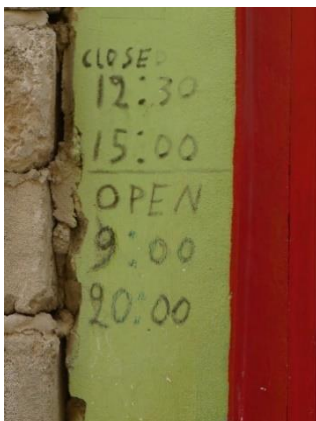 CLOSED
12:30
15:00
OPEN
9:00
20:00